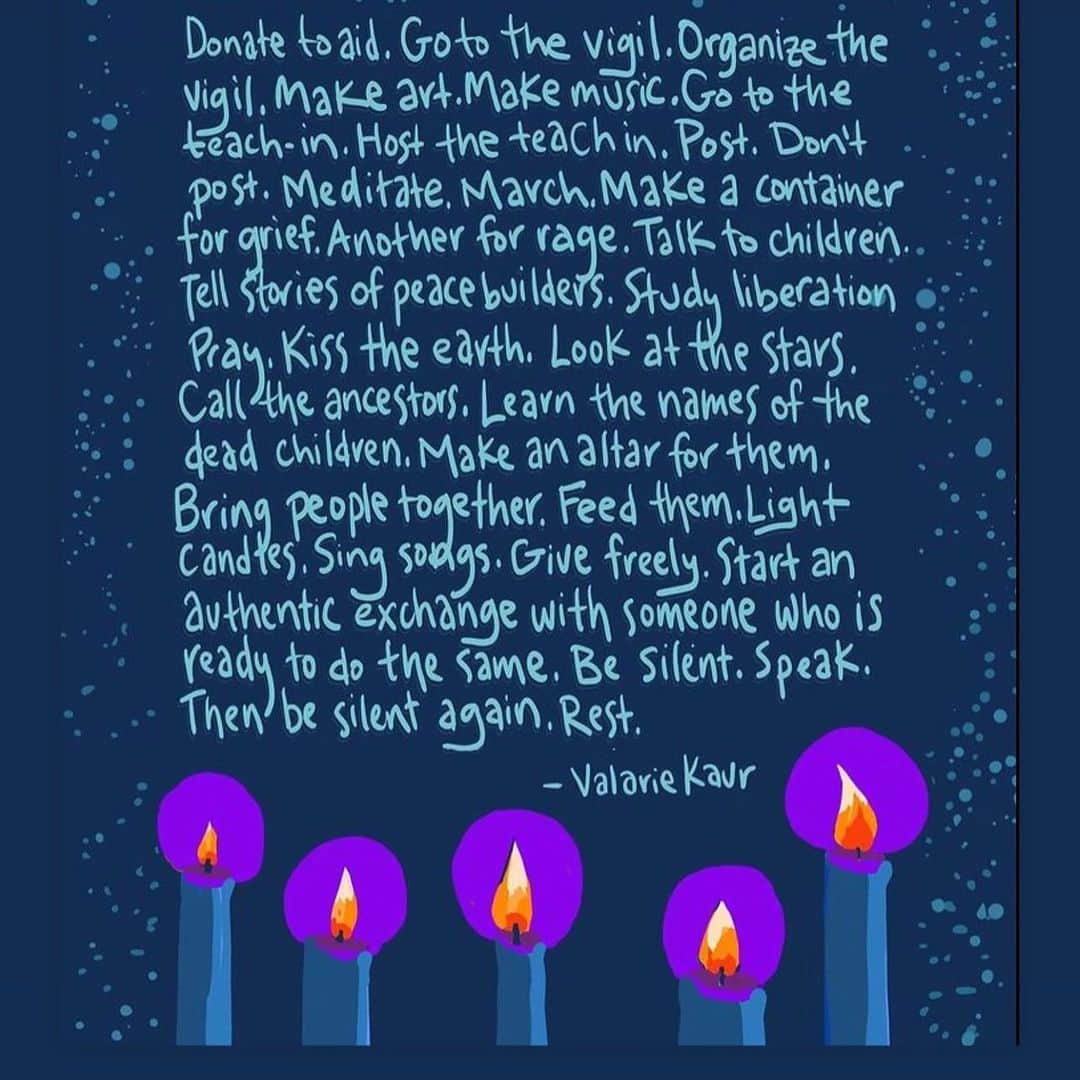 Donate to aid. Go to the vigil. Organize the
vigil. Make art. Make music. Go to the
teach-in. Host the teach in. Post. Don't
post. Meditate. March. Make a container
for grief. Another for rage. Talk to children.
Tell stories of peace builders. Study liberation
Pray. Kiss the earth. Look at the stars.
Call the ancestors. Learn the names of the
dead children. Make an altar for them.
Bring people together. Feed them. Light
candles. Sing songs. Give freely. Start an
authentic exchange with someone who is
ready to do the same. Be silent. Speak.
Then be silent again. Rest.
- Valarie Kaur